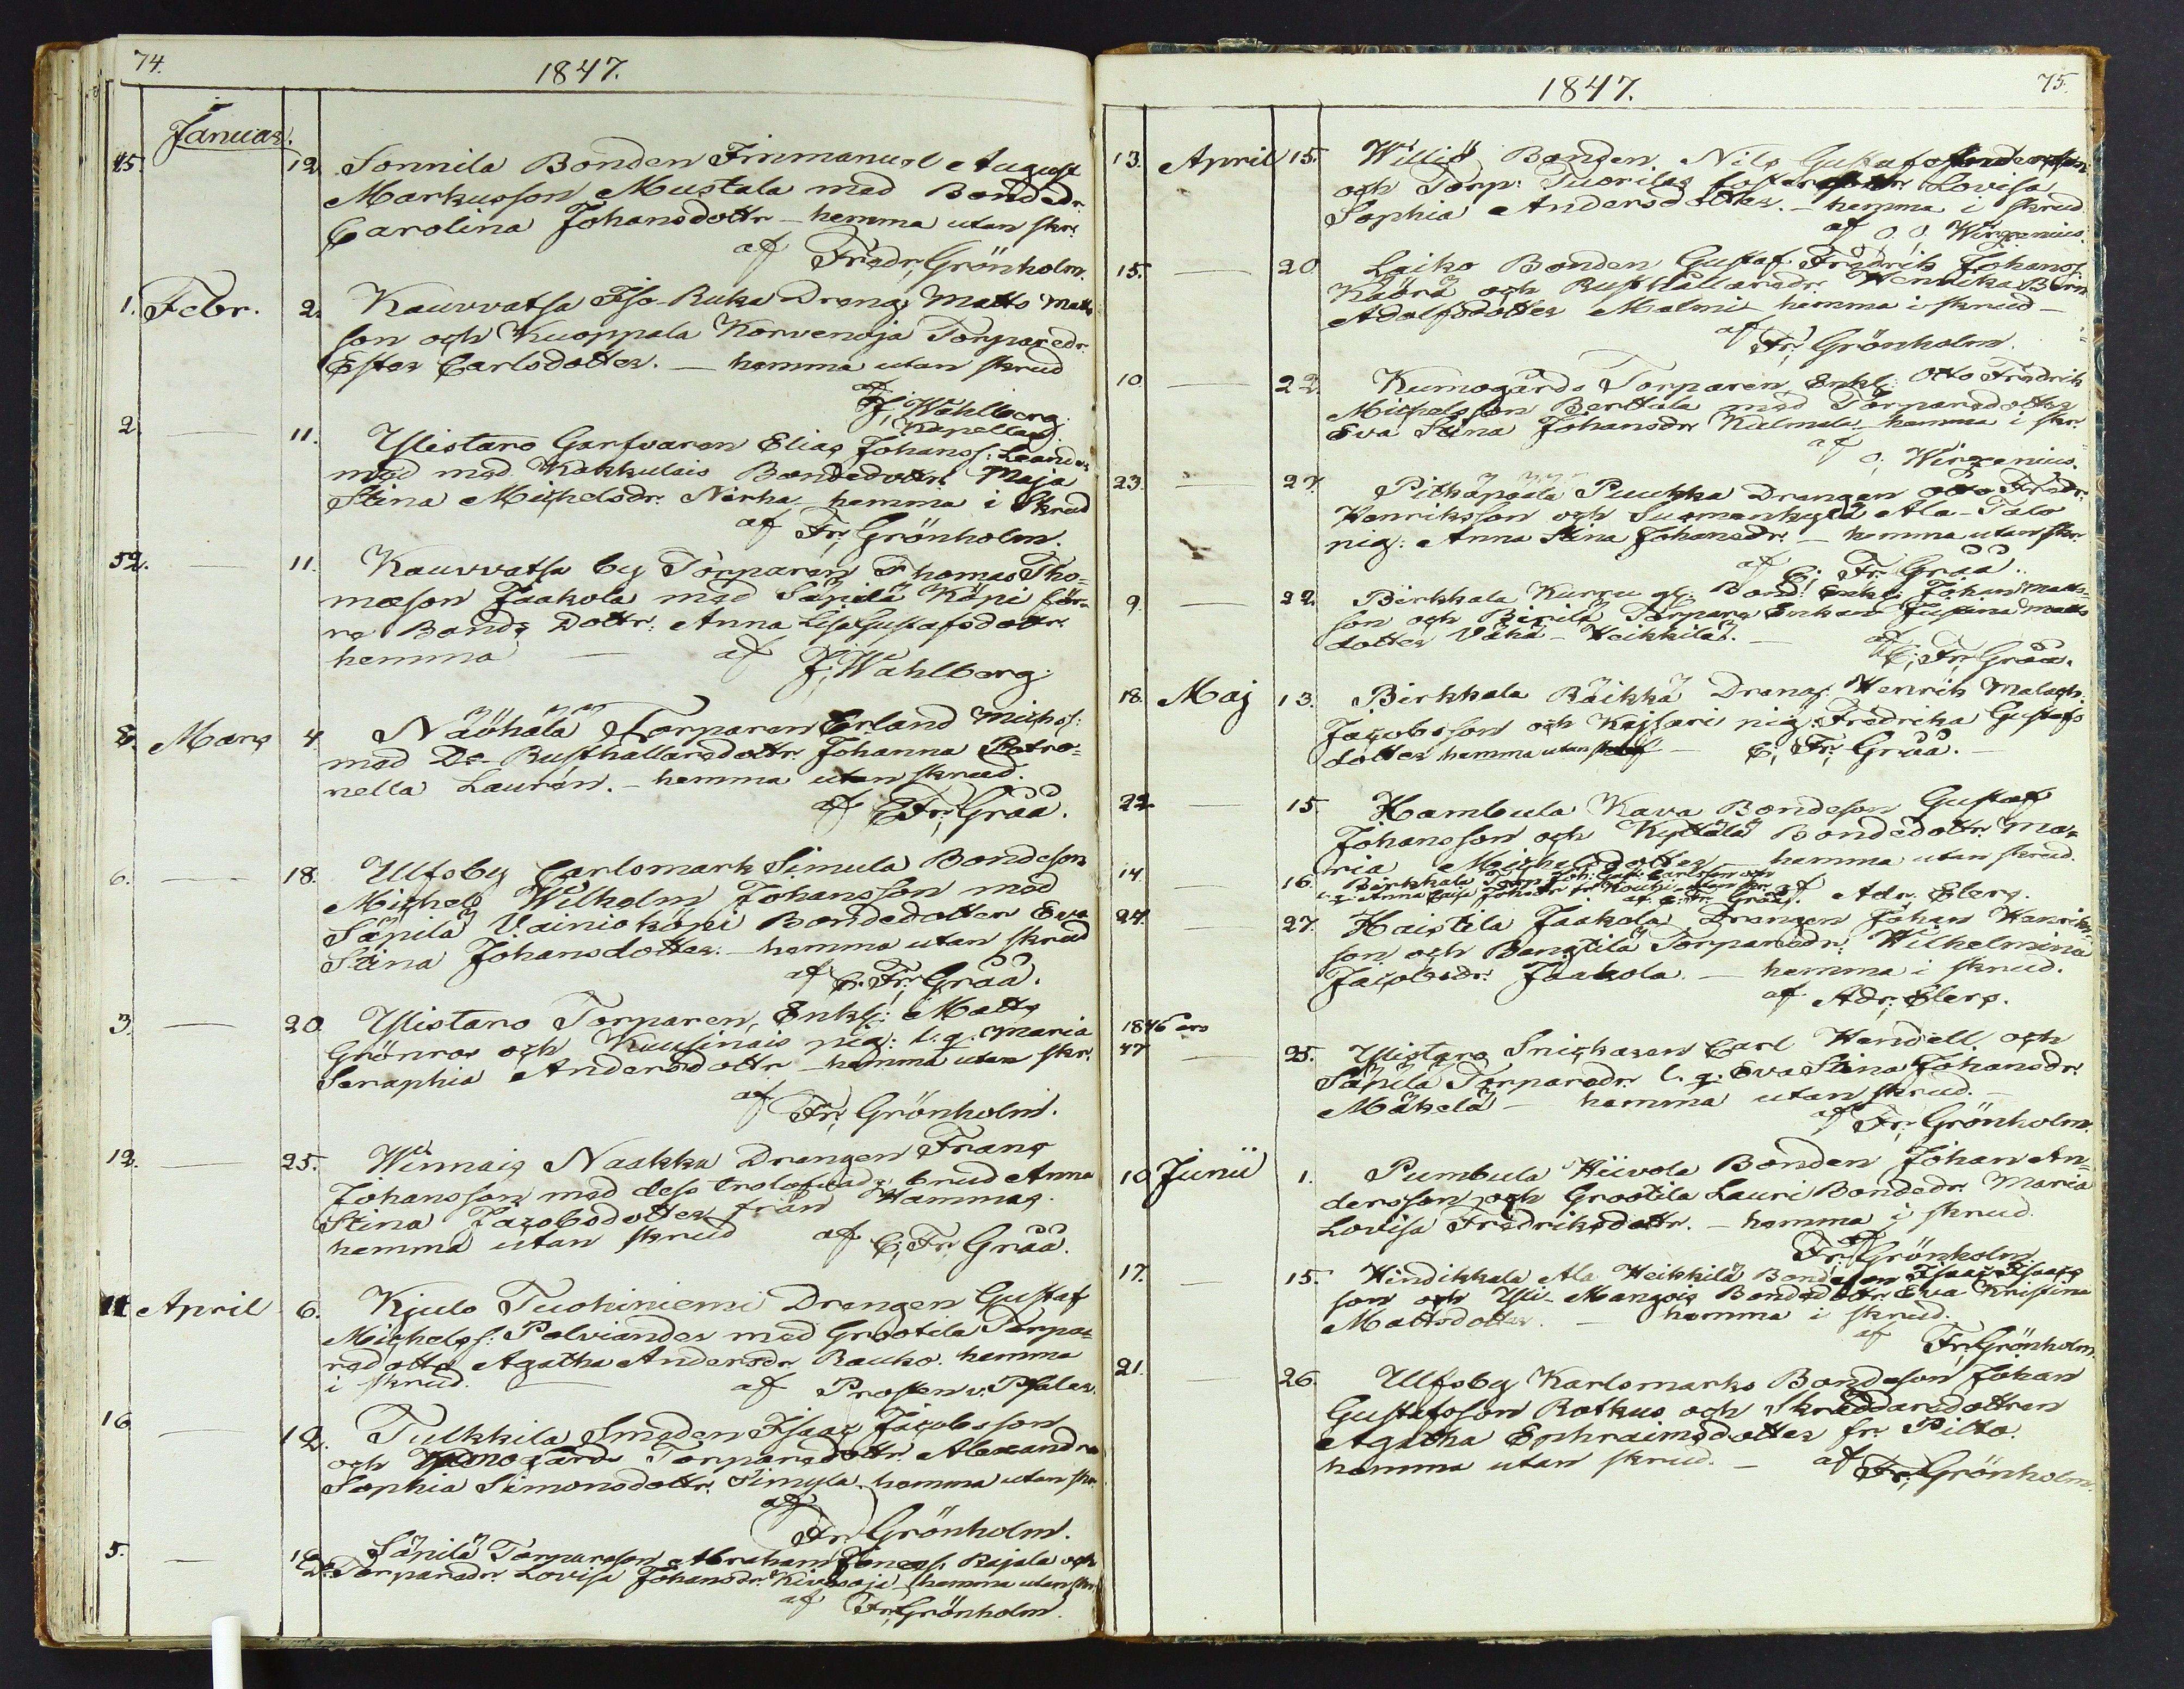 74.
1847.
Januar.
45. 12. Sonnila Bonden Immanuel August
Markusson Mustala med Bondedr.
Carolina Johansdottr – hemma utan skr.
af Fredr. Grönholm.
1. Febr. 2. Kauvvatsa Iso-Ruka Dräng Matts Matts
son och Kuoppala Korvenoja Torparedr.
Ester Carlsdotter. – hemma utan skrud
af
J. Wahlberg.
Kapellan.
2. — 11. Ylistaro Garfvaren Elias Johanss: Leander
med med Kakkulais Bondedottr. Maja
Stina Michelsdr. Nirha hemma i skrud
af Fr. Grönholm.
52. — 11. Kauvvatsa by Torparen Thomas Tho-
masson Jaakola med Säpilä Köpi för-
re Bonds Dottr: Anna Lisa Gustafsdottr.
hemma — af J. Wahlberg.
8. Mars 4. Näöhälä Torparen Erland Michels:
med Do- Rusthallarsdottr. Johanna Petro-
nella Laurén. – hemma utan skrud.
af C. Fr. Gråå.
6. — 18. Ulfsby Carlsmark Simula Bondeson
Michel Wilhelm Johansson med
Säpilä Vainioköpi Bondedotter Eva
Stina Johansdotter. – hemma utan skrud
af C. Fr. Gråå.
3. — 20. Ylistaro Torparen, Enkl: Matts
Grönroos och Kuusinais pig: l. q. Maria
Seraphia Andersdottr – hemma utan skr.
af Fr. Grönholm.
12. — 25. Winnais Naakka Drängen Frans
Johansson med dess trolofvade brud Anna
Stina Jacobsdotter från Hammas.
hemma utan skrud af C. Fr. Gråå.
11 April 6. Kjulo Tuohiniemi Drängen Gustaf
Michelss: Polviander med Grootila Torpa-
redottr Agatha Andersdr Rauko. hemma
i skrud. — af Prosten v. Pfaler.
16 — 12. Tulkkila Smeden Isaac Jacobsson
och Kumogårds Torparedottr. Alexandra
Sophia Simonsdottr. Simula. hemma utan skr.
af
Fr. Grönholm.
5. — 16. Säpilä Torpareson Abraham Jonass. Rajala och
Do Torparedr. Lovisa Johansdr. Kivisoja hemma utan skr.
af Fr. Grönholm.
1847.
75.
13. April 15. Williö Bonden Nils Gustaf Andersson
och Torp. Tuorilas fosterdottr. Lovisa
Sophia Andersdotter. – hemma i skrud.
af O. O. Wirzenius.
15. — 20. Laiko Bonden Gustaf Fredrik Johanss.
Kaöra och Rusthållarsdr. Hendrika
Adolfsdotter Malmi hemma i skrud –
af Fr. Grönholm.
10. — 22. Kumogårds Torparen Enkl: Otto Fredrik
Michelsson Berttula med Torparedotter
Eva Stina Johansdr Kulmala – hemma i skr.
af O. Wirzenius.
23. — 27. Pitkäpäälä Puukka Drängen Otto Fredr.
Henriksson och Suomenkylä Ala-Talo
pig. Anna Stina Johansdr. – hemma utan skr.
af C. Fr. Gråå.
9. — 22. Birkkala Kurru gl. Bond. Enkl. Johan Matts-
son och Birilä Torpare Enkan Justina Matts
dotter Vähä-Heikkilä. –
af C. Fr. Gråå.
18. Maj 13. Birkkala Räikkä Dräng. Henrik Malach.
Jacobsson och Kajsari pig. Fredrika Gustafs
dotter hemma utan – C. Fr. Gråå. –
22. — 15. Hambula Kava Bondeson Gustaf
Johansson och Kyttälä Bondedottr. Ma-
ria Michelsdotter – hemma utan skrud.
af Adr. Elers.
14. — 16. Birkkala Torp. Joh. Gust. Carlsson och
l. q. Anna Caisa Johsdr fr. Kouhi – utan skr.
af C. Fr. Gråå.
24. — 27. Haistila Jaakola Drängen Johan Henriks-
son och Bengtilä Torparedr. Wilhelmina
Jacobsdr. Jaakola. – hemma i skrud.
af Adr. Elers.
1846 års
47 — 25. Ylistaro Snickaren Carl Hendell och
Säpilä Torparedr. l. q. Eva Stina Johansdr.
Mäkelä – hemma utan skrud. –
af Fr. Grönholm.
10 Junii 1. Pumbula Hiivola Bonden Johan An-
dersson och Grootila Lauri Bondedr. Maria
Lovisa Fredriksdottr. – hemma i skrud.
af
Fr. Grönholm.
17. — 15. Hindikkala Ala Heikkilä Bondeson Isaac Isaacs
son och Yli-Mangois Bondedottr. Eva Kristina
Mattsdotter. – hemma i skrud.
af Fr. Grönholm.
21. — 26. Ulfsby Karlsmarks Bondeson Johan
Gustafsson Rotkus och Skräddaredottren
Agatha Ephraimsdotter fr. Pilto.
hemma utan skrud. – af Fr. Grönholm.